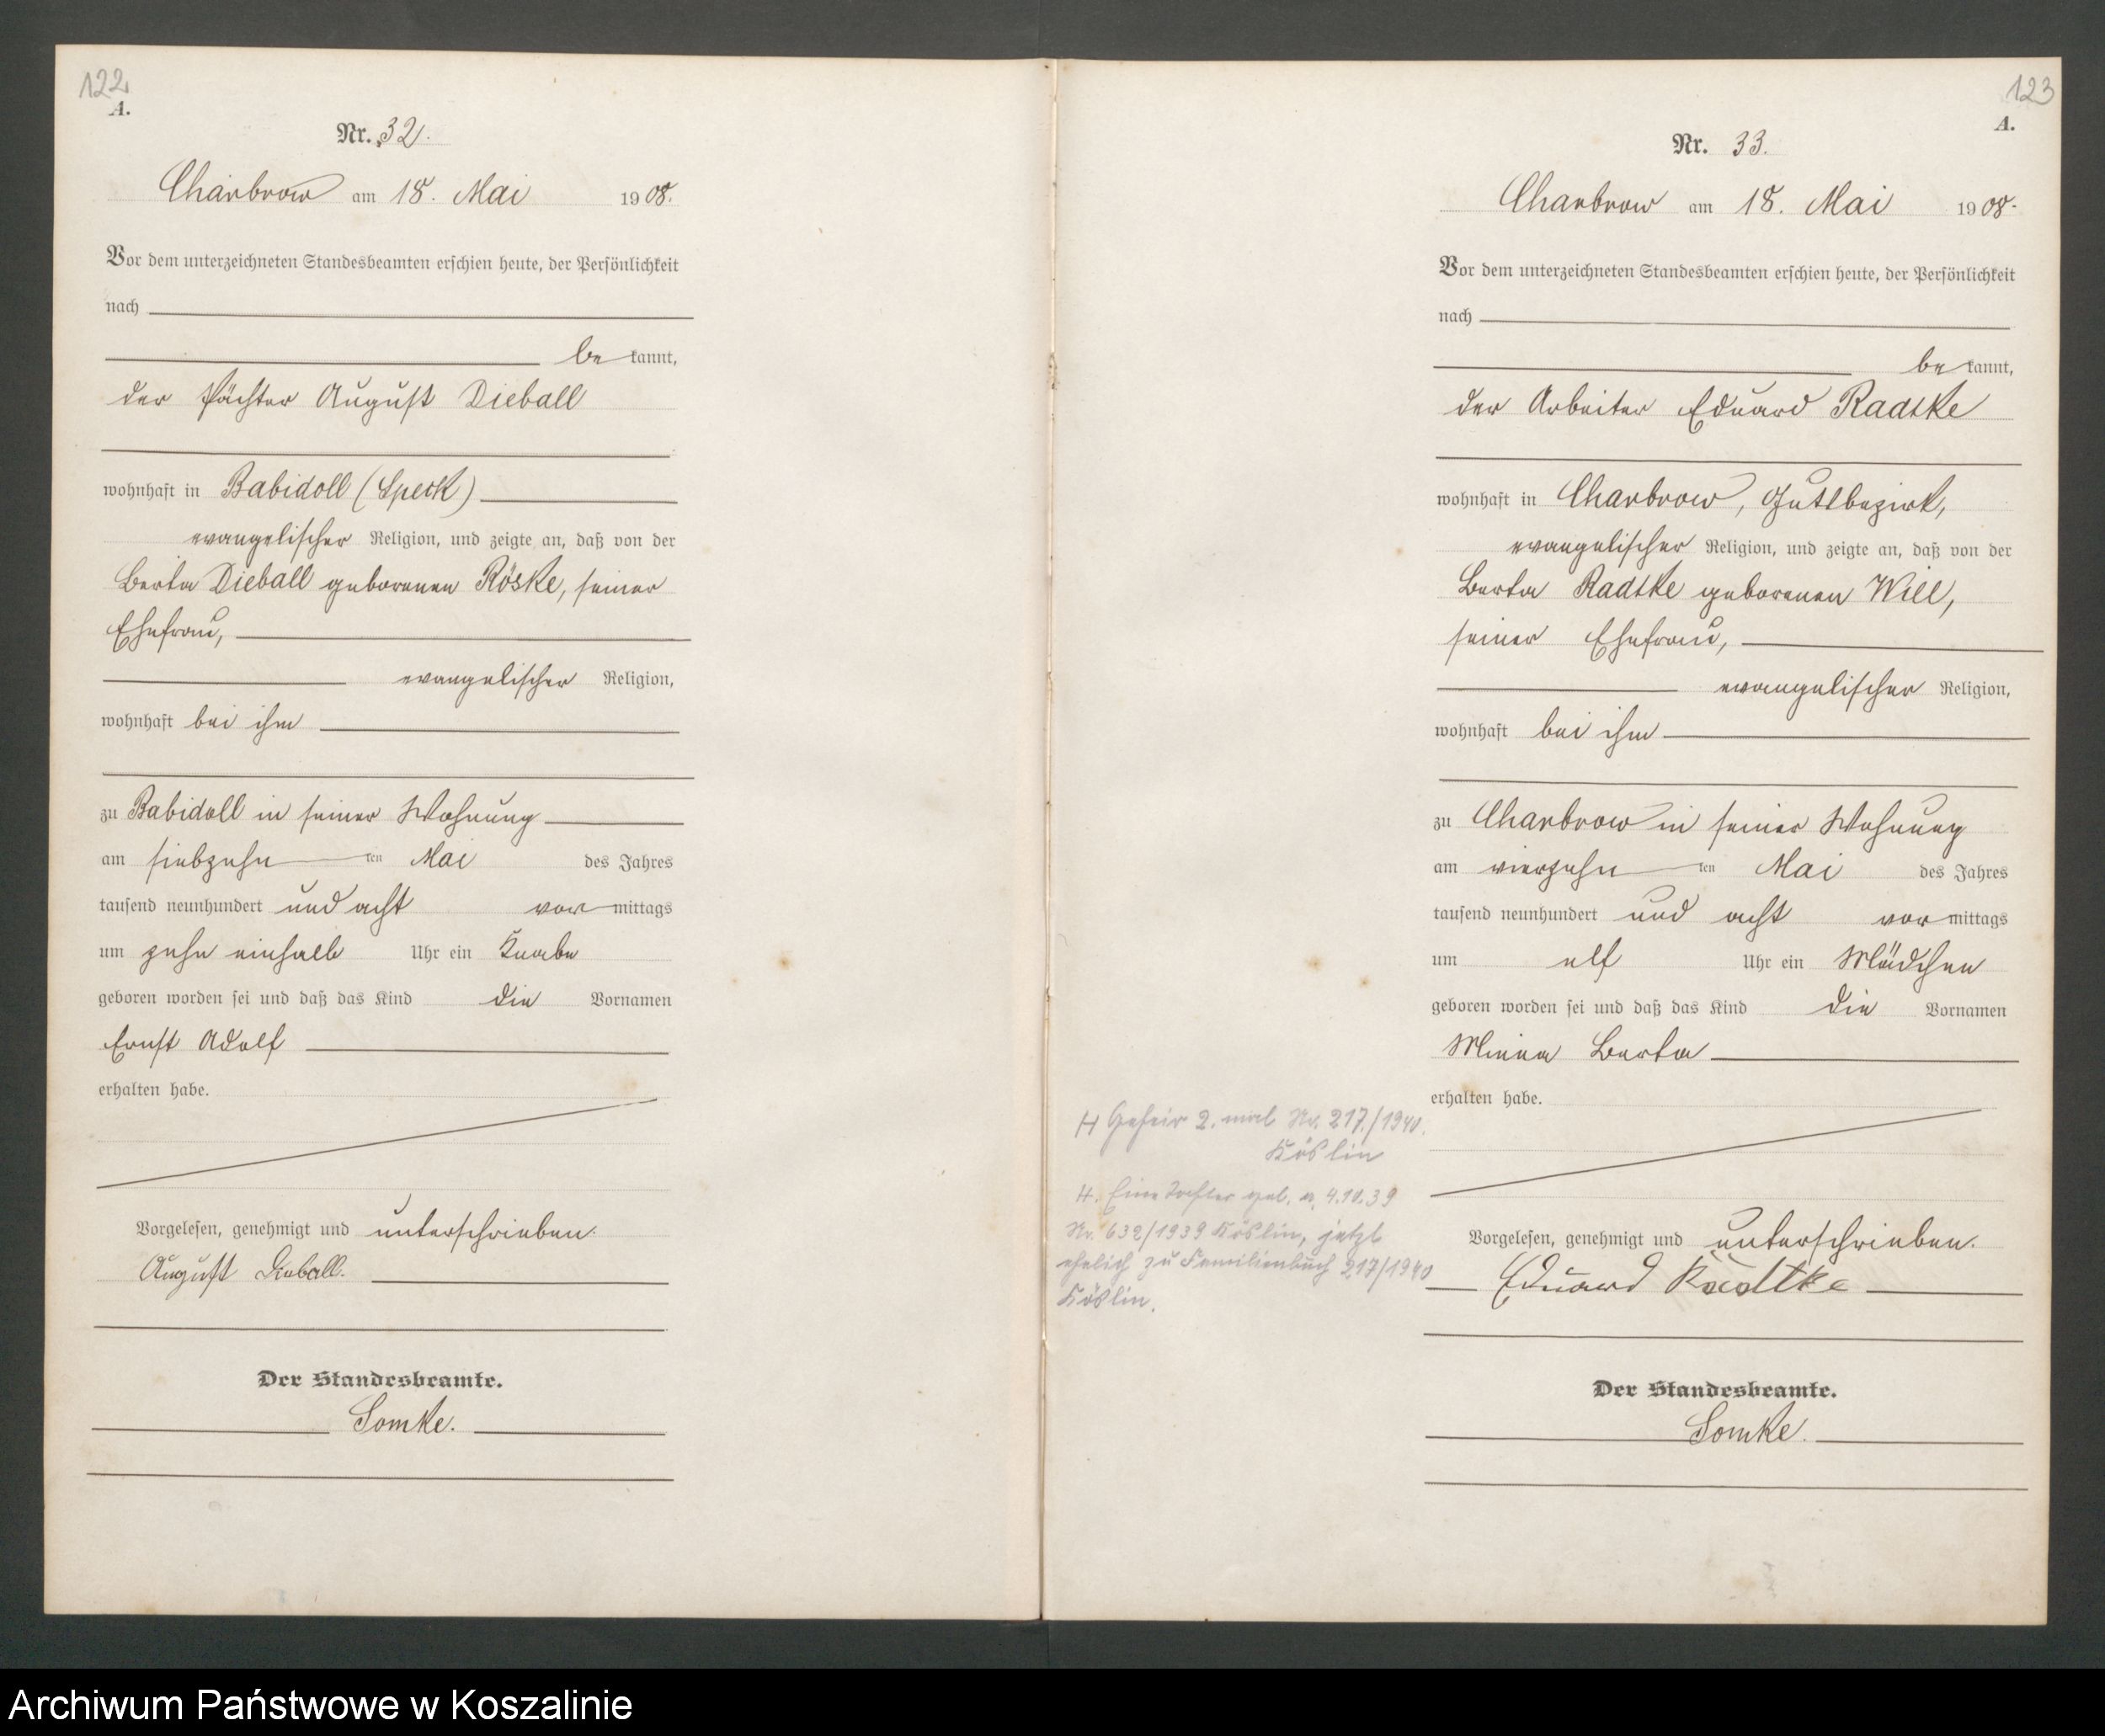 122
A.
Nr. 32.
Charbrow am 18. Mai 1908.
Vor dem unterzeichneten Standesbeamten erschien heute, der Persönlichkeit
nach
be kannt,
der Pächter August Dieball
wohnhaft in Babidoll (Speck)
evangelischer Religion, und zeigte an, daß von der
Berta Dieball geborenen Röske, seiner
Ehefrau,
evangelischer Religion,
wohnhaft bei ihm
zu Babidoll in seiner Wohnung
am siebzehn ten Mai des Jahres
tausend neunhundert und acht vor mittags
um zehn einhalb Uhr ein Knabe
geboren worden sei und daß das Kind die Vornamen
Ernst Adolf
erhalten habe.
Vorgelesen, genehmigt und unterschrieben.
August Dieball.
Der Standesbeamte.
Somke.
123
A.
Nr. 33.
Charbrow am 18. Mai 1908.
Vor dem unterzeichneten Standesbeamten erschien heute, der Persönlichkeit
nach
be kannt,
der Arbeiter Eduard Radtke
wohnhaft in Charbrow, Gutsbezirk,
evangelischer Religion, und zeigte an, daß von der
Berta Radtke geborenen Will,
seiner Ehefrau,
evangelischer Religion,
wohnhaft bei ihm
zu Charbrow in seiner Wohnung
am vierzehn ten Mai des Jahres
tausend neunhundert und acht vor mittags
um elf Uhr ein Mädchen
geboren worden sei und daß das Kind die Vornamen
Minna Berta
erhalten habe.
H Geheir 2. mal Nr. 217/1940.
Köslin
H. Eine Tochter geb. a. 4.10.39
Nr. 632/1939 Köslin, jetzt
ehelich zu Familienbuch 217/1940
Köslin.
Vorgelesen, genehmigt und unterschrieben.
Eduard Radtke
Der Standesbeamte.
Somke.
Archiwum Państwowe w Koszalinie